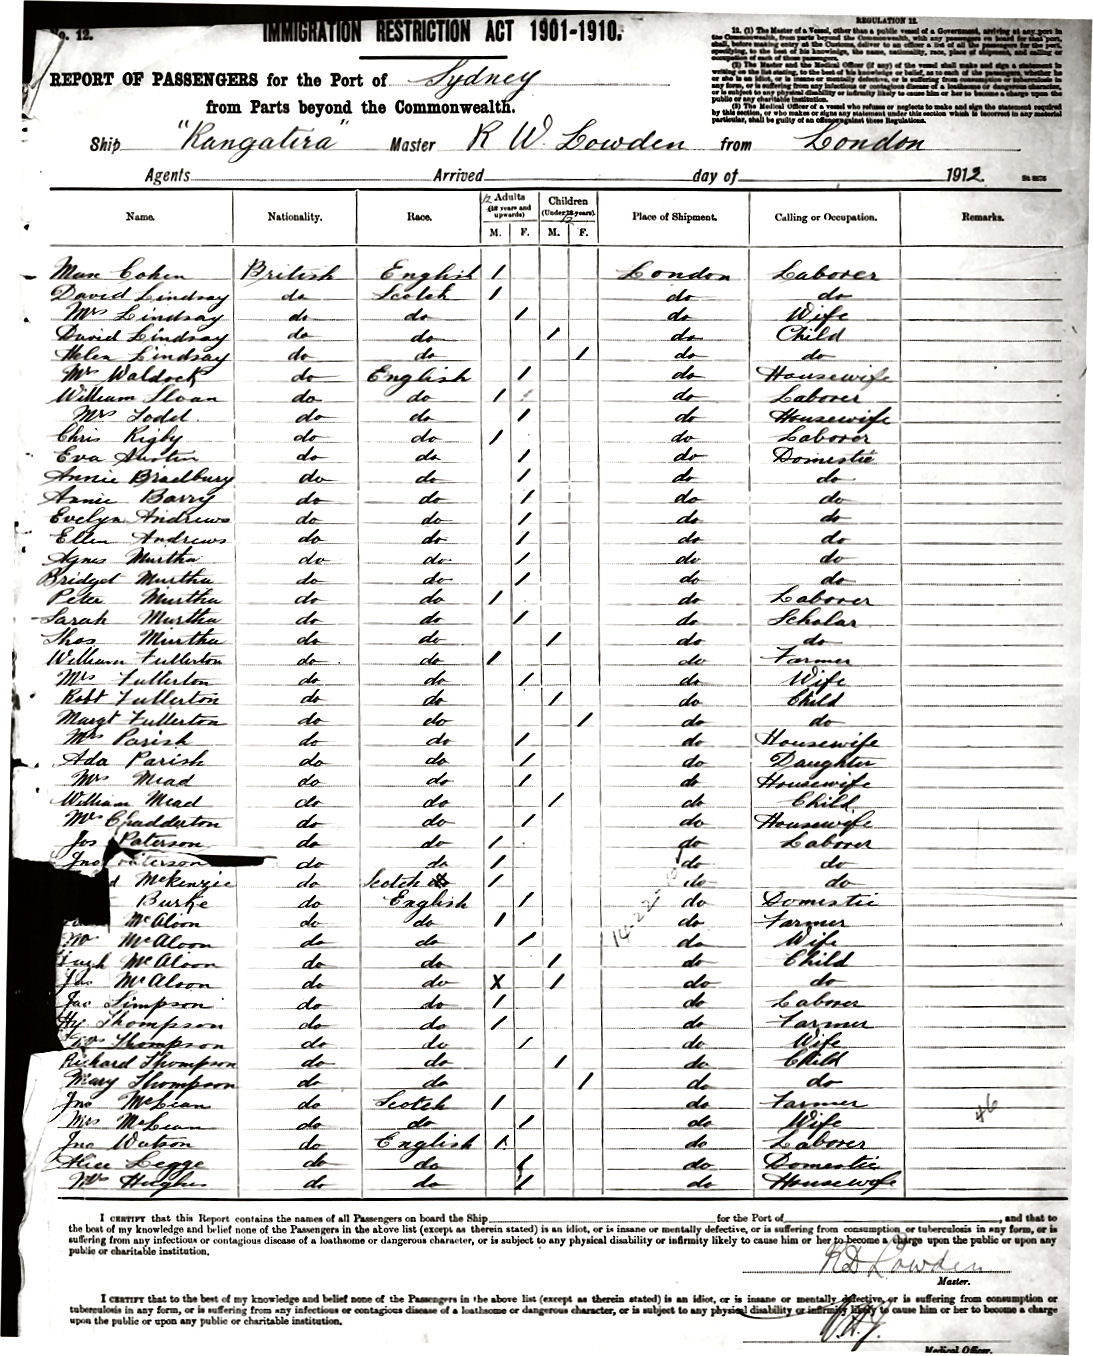 No. 12.
IMMIGRATION RESTRICTION ACT 1901-1910.
REGULATION 12.
12. (1) The Master of a Vessel, other than a public vessel of a Government, arriving at any port in
REPORT OF PASSENGERS for the Port of Sydney
from Parts beyond the Commonwealth.
Ship "Rangatira" Master R W. Lowden from London
Agents Arrived day of 1912
Name. Nationality. Race. 12 Adults (16 years and upwards) M. F. Children (Under 12 years). M. F. Place of Shipment. Calling or Occupation. Remarks.
Max Cohen British English / London Laborer
David Lindsay do Scotch / do do
Mrs Lindsay do do / do Wife
David Lindsay do do / do Child
Helen Lindsay do do / do do
Mrs Waldock do English / do Housewife
William Sloan do do / do Laborer
Mrs Todd do do / do Housewife
Chris Rigby do do / do Laborer
Eva Austin do do / do Domestic
Annie Bradbury do do / do do
Annie Barry do do / do do
Evelyn Andrews do do / do do
Ellen Andrews do do / do do
Agnes Murtha do do / do do
Bridget Murtha do do / do do
Peter Murtha do do / do Laborer
Sarah Murtha do do / do Scholar
Thos Murtha do do / do do
William Fullerton do do / do Farmer
Mrs Fullerton do do / do Wife
Robt Fullerton do do / do Child
Margt Fullerton do do / do do
Mrs Parish do do / do Housewife
Ada Parish do do / do Daughter
Mrs Mead do do / do Housewife
William Mead do do / do Child
Mrs Chadderton do do / do Housewife
Jos Paterson do do / do Laborer
Jno Paterson do do / do do
d McKenzie do Scotch / do do
Burke do English / do Domestic
McAloon do do / do Farmer
McAloon do do / do Wife
Hugh McAloon do do / do Child
Jas McAloon do do X / do do
Jas Simpson do do / do Laborer
Hy Thompson do do / do Farmer
Mrs Thompson do do / do Wife
Richard Thompson do do / do Child
Mary Thompson do do / do do
Jno McLean do Scotch / do Farmer
Mrs McLean do do / do Wife
46
Jno Watson do English / do Laborer
Alice Legge do do / do Domestic
Mrs Hughes do do / do Housewife
I CERTIFY that this Report contains the names of all Passengers on board the Ship for the Port of , and that to
the best of my knowledge and belief none of the Passengers in the above list (except as therein stated) is an idiot, or is insane or mentally defective, or is suffering from consumption or tuberculosis in any form, or is
suffering from any infectious or contagious disease of a loathsome or dangerous character, or is subject to any physical disability or infirmity likely to cause him or her to become a charge upon the public or upon any
public or charitable institution.
Lowden
Master.
I CERTIFY that to the best of my knowledge and belief none of the Passengers in the above list (except as therein stated) is an idiot, or is insane or mentally defective, or is suffering from consumption or
tuberculosis in any form, or is suffering from any infectious or contagious disease of a loathsome or dangerous character, or is subject to any physical disability or infirmity likely to cause him or her to become a charge
upon the public or upon any public or charitable institution.
Medical Officer.